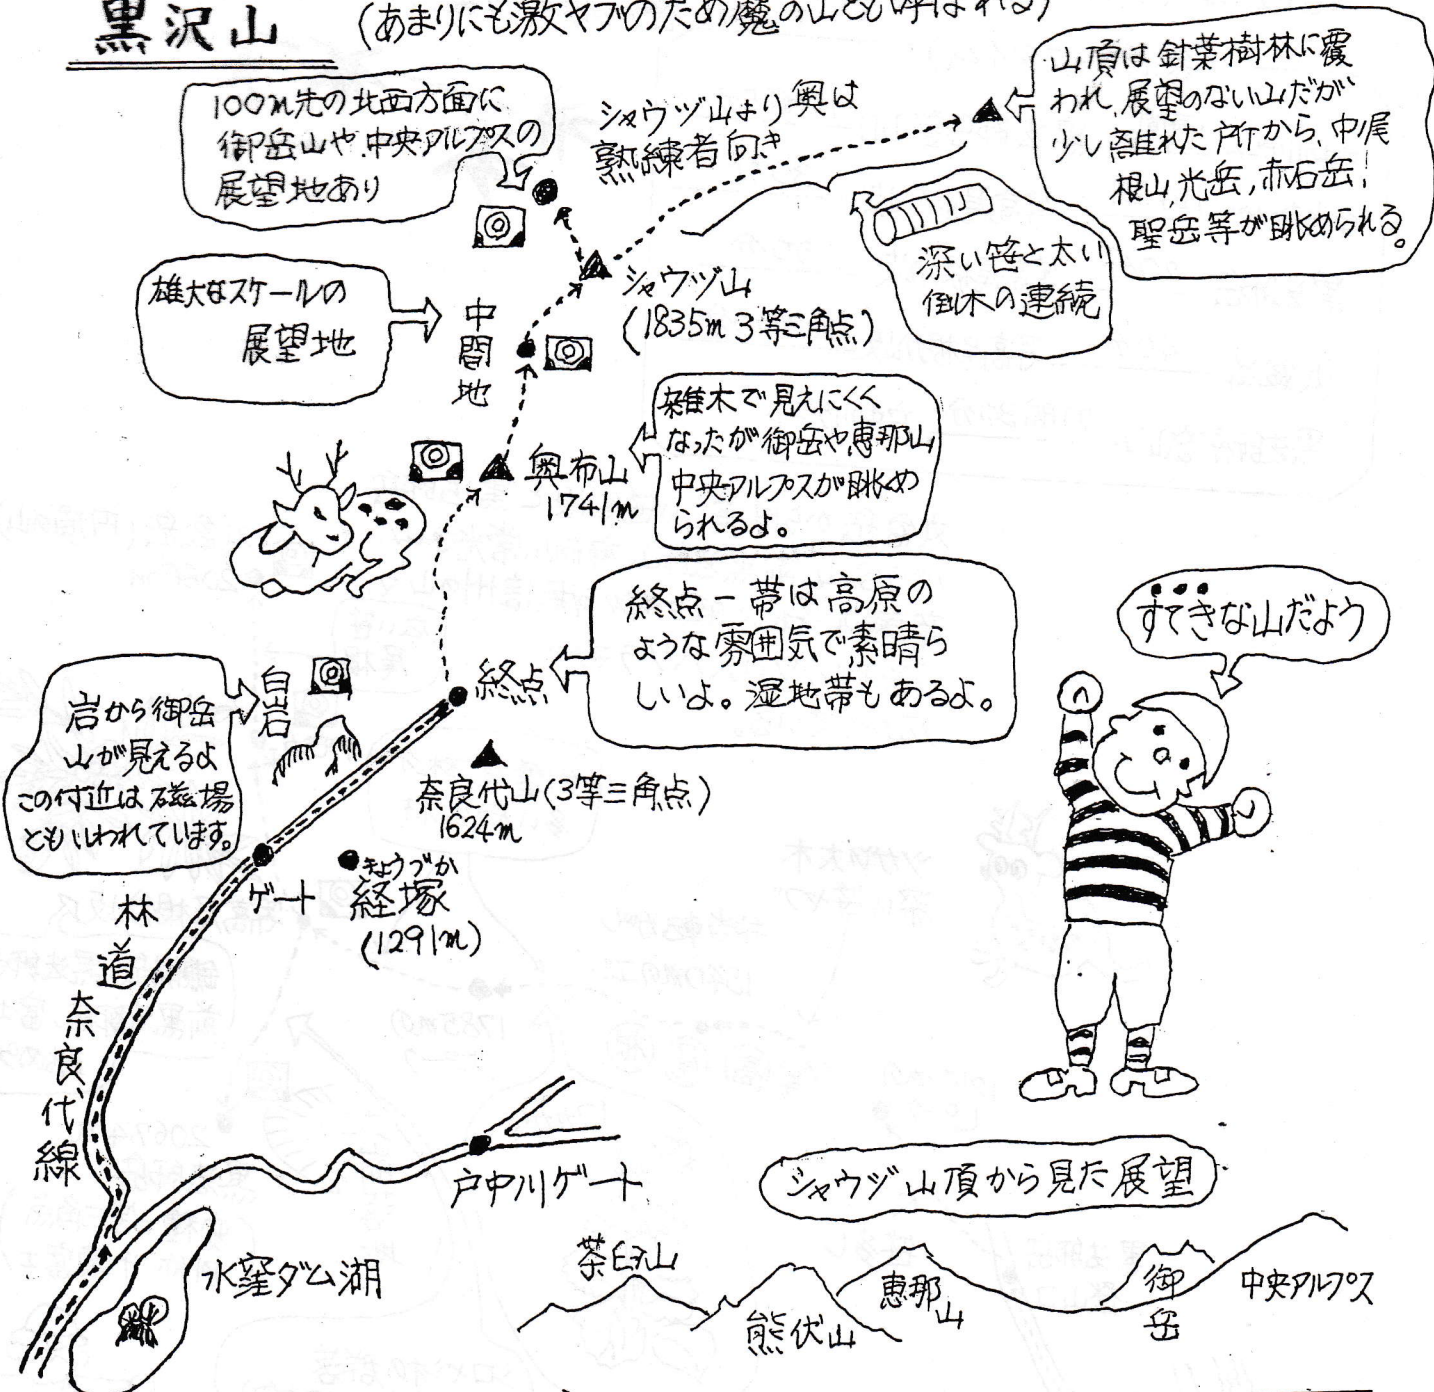 黒沢山
(あまりにも激ヤブのため魔の山とも呼ばれる)
100m先の北西方面に
御岳山や中央アルプスの
展望地あり
シャウヅ山より奥は
熟練者向き
山頂は針葉樹林に覆
われ、展望のない山だが
少し離れた所から、中ノ尾
根山、光岳、赤石岳、
聖岳等が眺められる。
深い笹と太い
倒木の連続
雄大なスケールの
展望地
中間地
シャウヅ山
(1835m 3等三角点)
雑木で見えにくく
なったが御岳や恵那山
中央アルプスが眺め
られるよ。
奥布山
1741m
終点一帯は高原の
ような雰囲気で素晴ら
しいよ。湿地帯もあるよ。
すてきな山だよう
終点
白岩
岩から御岳
山が見えるよ
この付近は磁場
ともいわれています。
奈良代山(3等三角点)
1624m
ゲート
きょうづか
経塚
(1291m)
林道奈良代線
戸中川ゲート
水窪ダム湖
シャウヅ山頂から見た展望
茶臼山
熊伏山
恵那山
御岳
中央アルプス